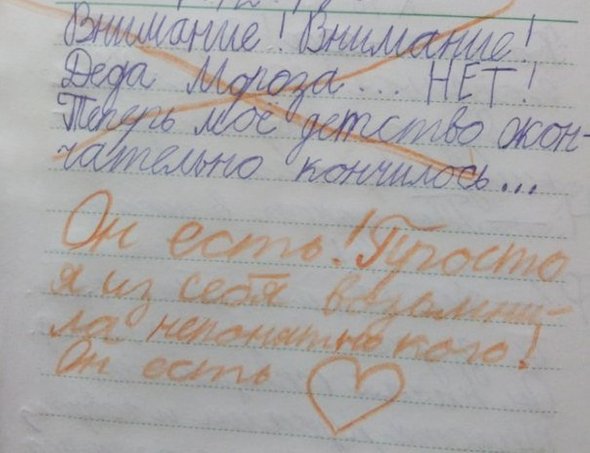 Внимание! Внимание!
Деда Мороза... НЕТ!
Теперь моё детство окон-
чательно кончилось...
Он есть! Просто
я из себя возомни-
ла непонятно кого!
Он есть